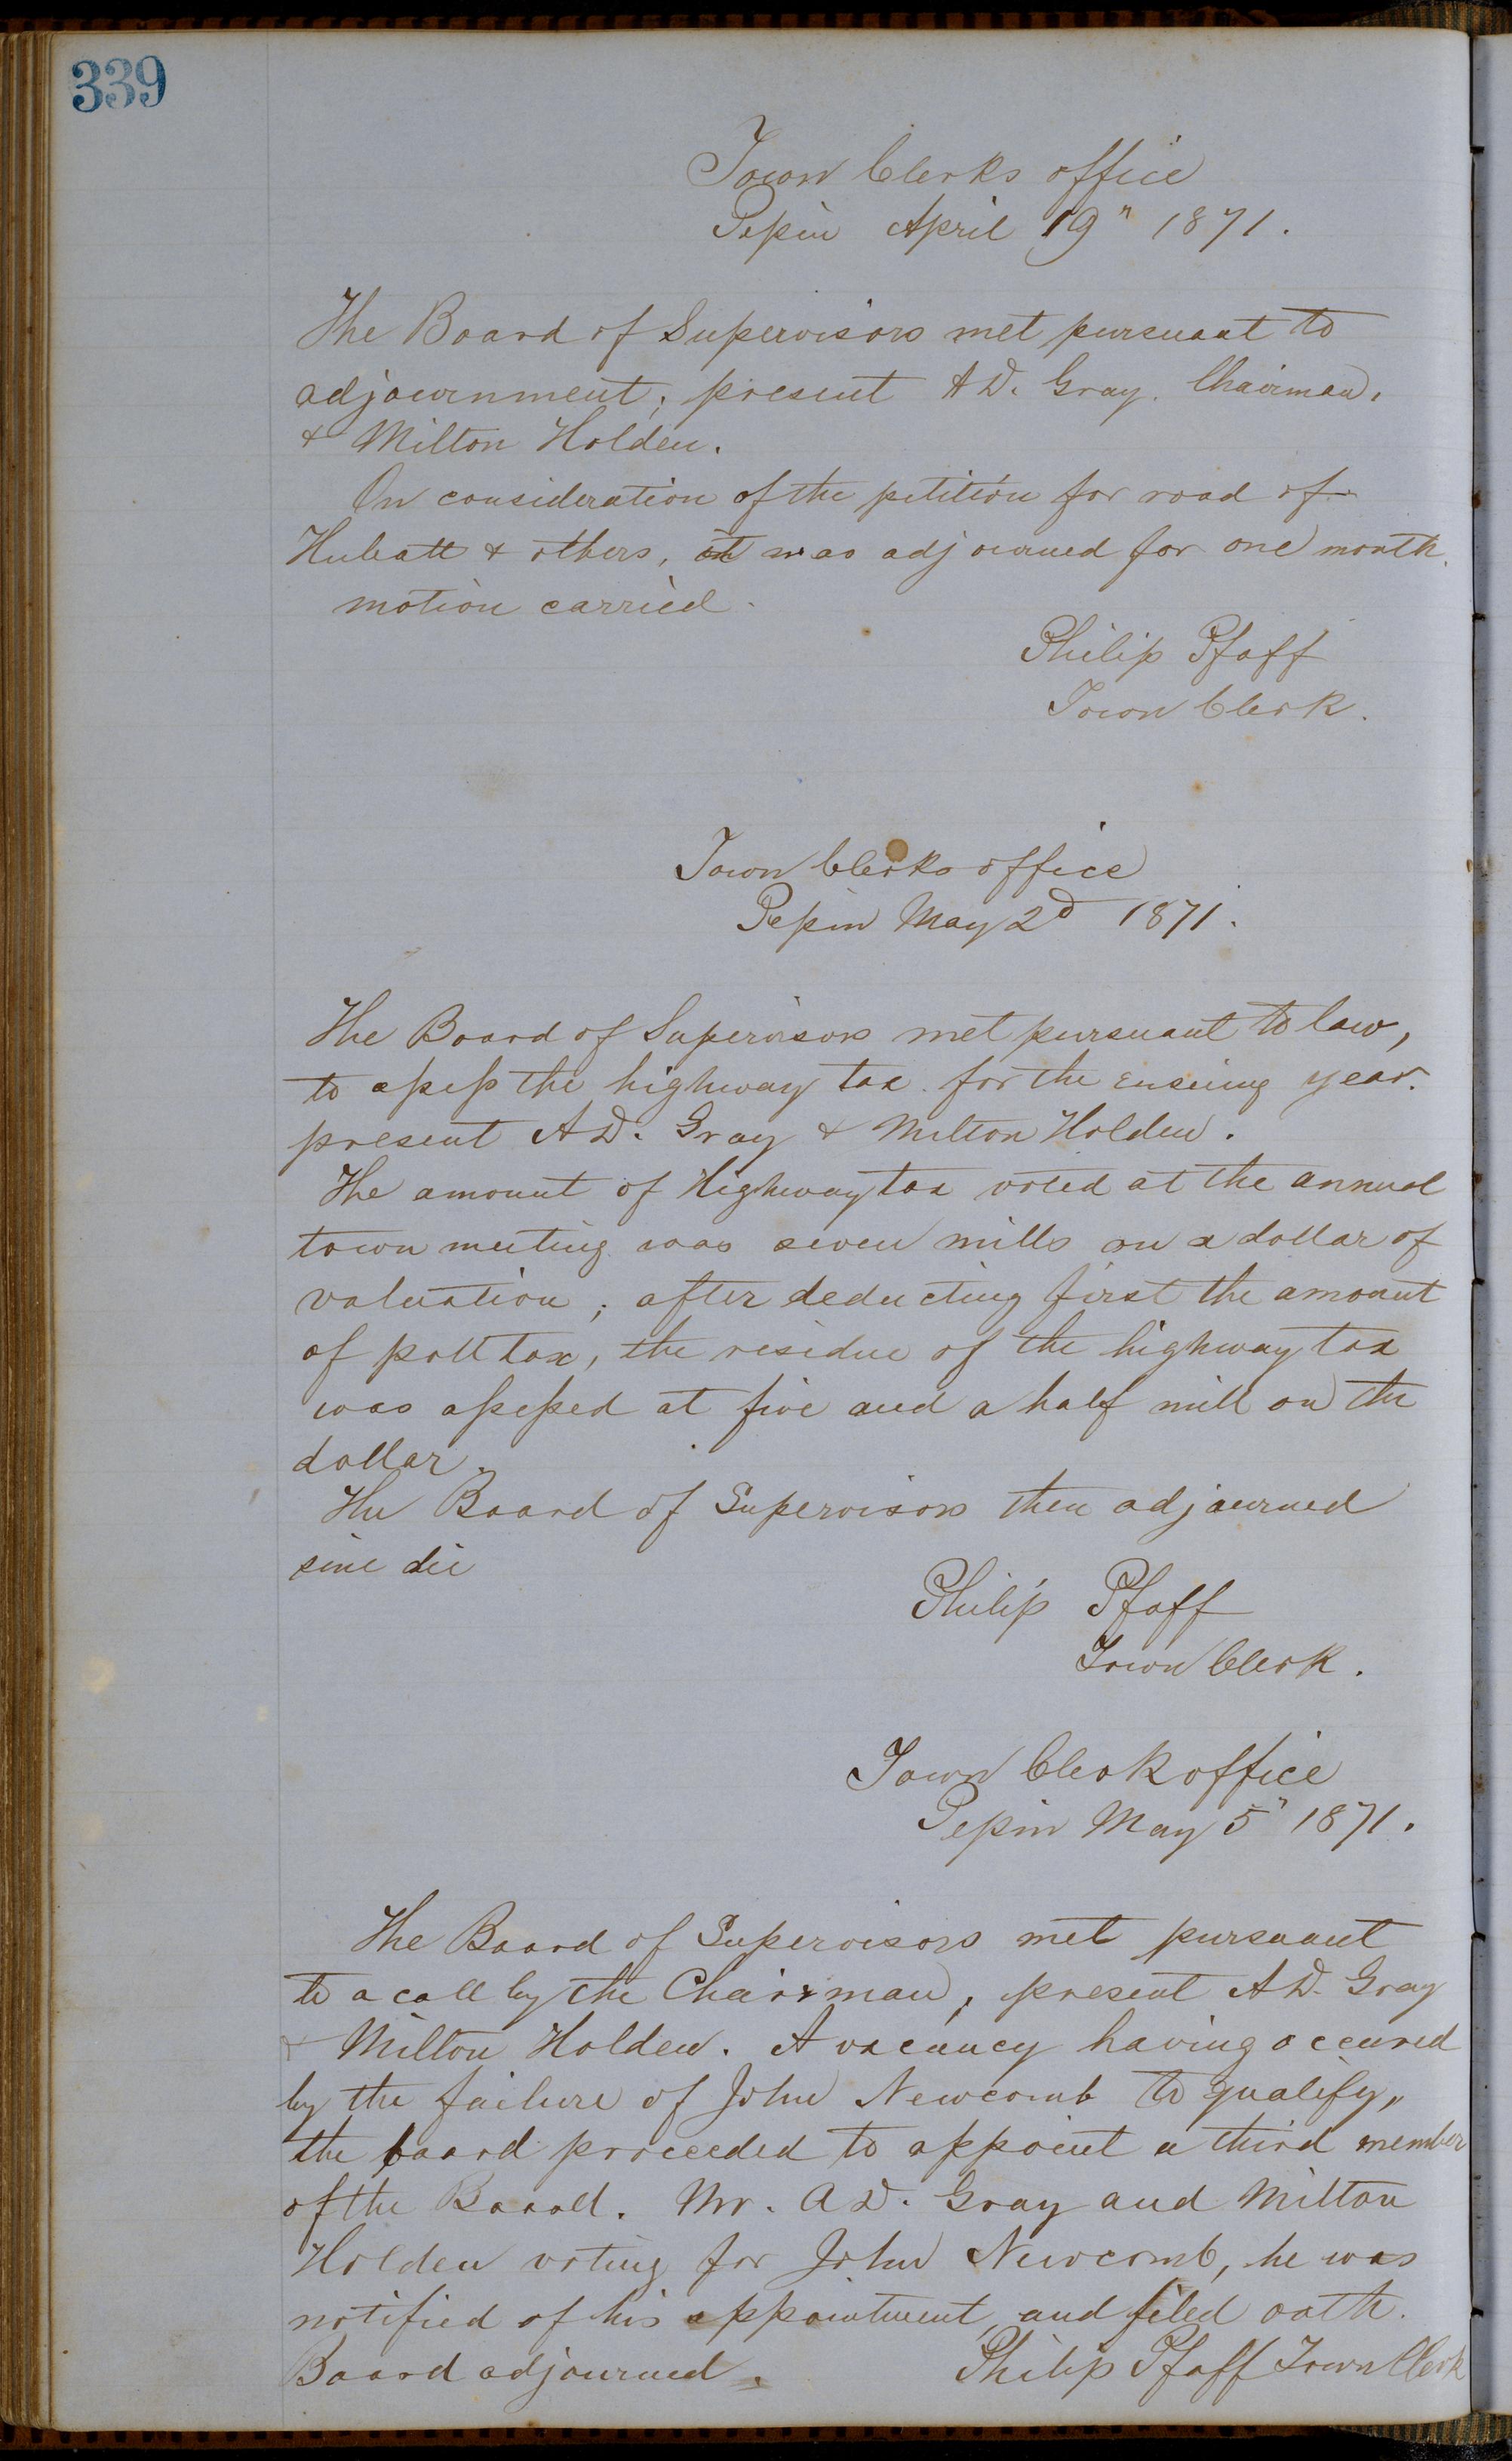 339
Town Clerks office
Pepin April 19" 1871.
The Board of Supervisors met pursuant to
adjournment; present A D. Gray. Chairman,
& Milton Holden.
On consideration of the petition for road of
& others, it was adjourned for one month.
motion carried.
Philip Pfaff
Town Clerk.
Town Clerks office
Pepin May 2d 1871.
The Board of Supervisors met pursuant to law,
to assess the highway tax for the ensuing year.
present A D. Gray & Milton Holden.
The amount of Highway tax voted at the annual
town meeting was seven mills on a dollar of
valuation; after deducting first the amount
of poll tax, the residue of the highway tax
was assessed at five and a half mill on the
dollar.
The Board of Supervisors then adjourned
sine die
Philip Pfaff
Town Clerk.
Town Clerk office
Pepin May 5" 1871.
The Board of Supervisors met pursuant
to a call by the Chairman, present A D. Gray
& Milton Holden. A vacancy having occured
by the failure of John Newcomb to qualify,,
the board proceeded to appoint a third member
of the Board. Mr. A D. Gray and Milton
Holden voting for John Newcomb, he was
notified of his appointment, and filed oath.
Board adjourned. Philip Pfaff Town Clerk